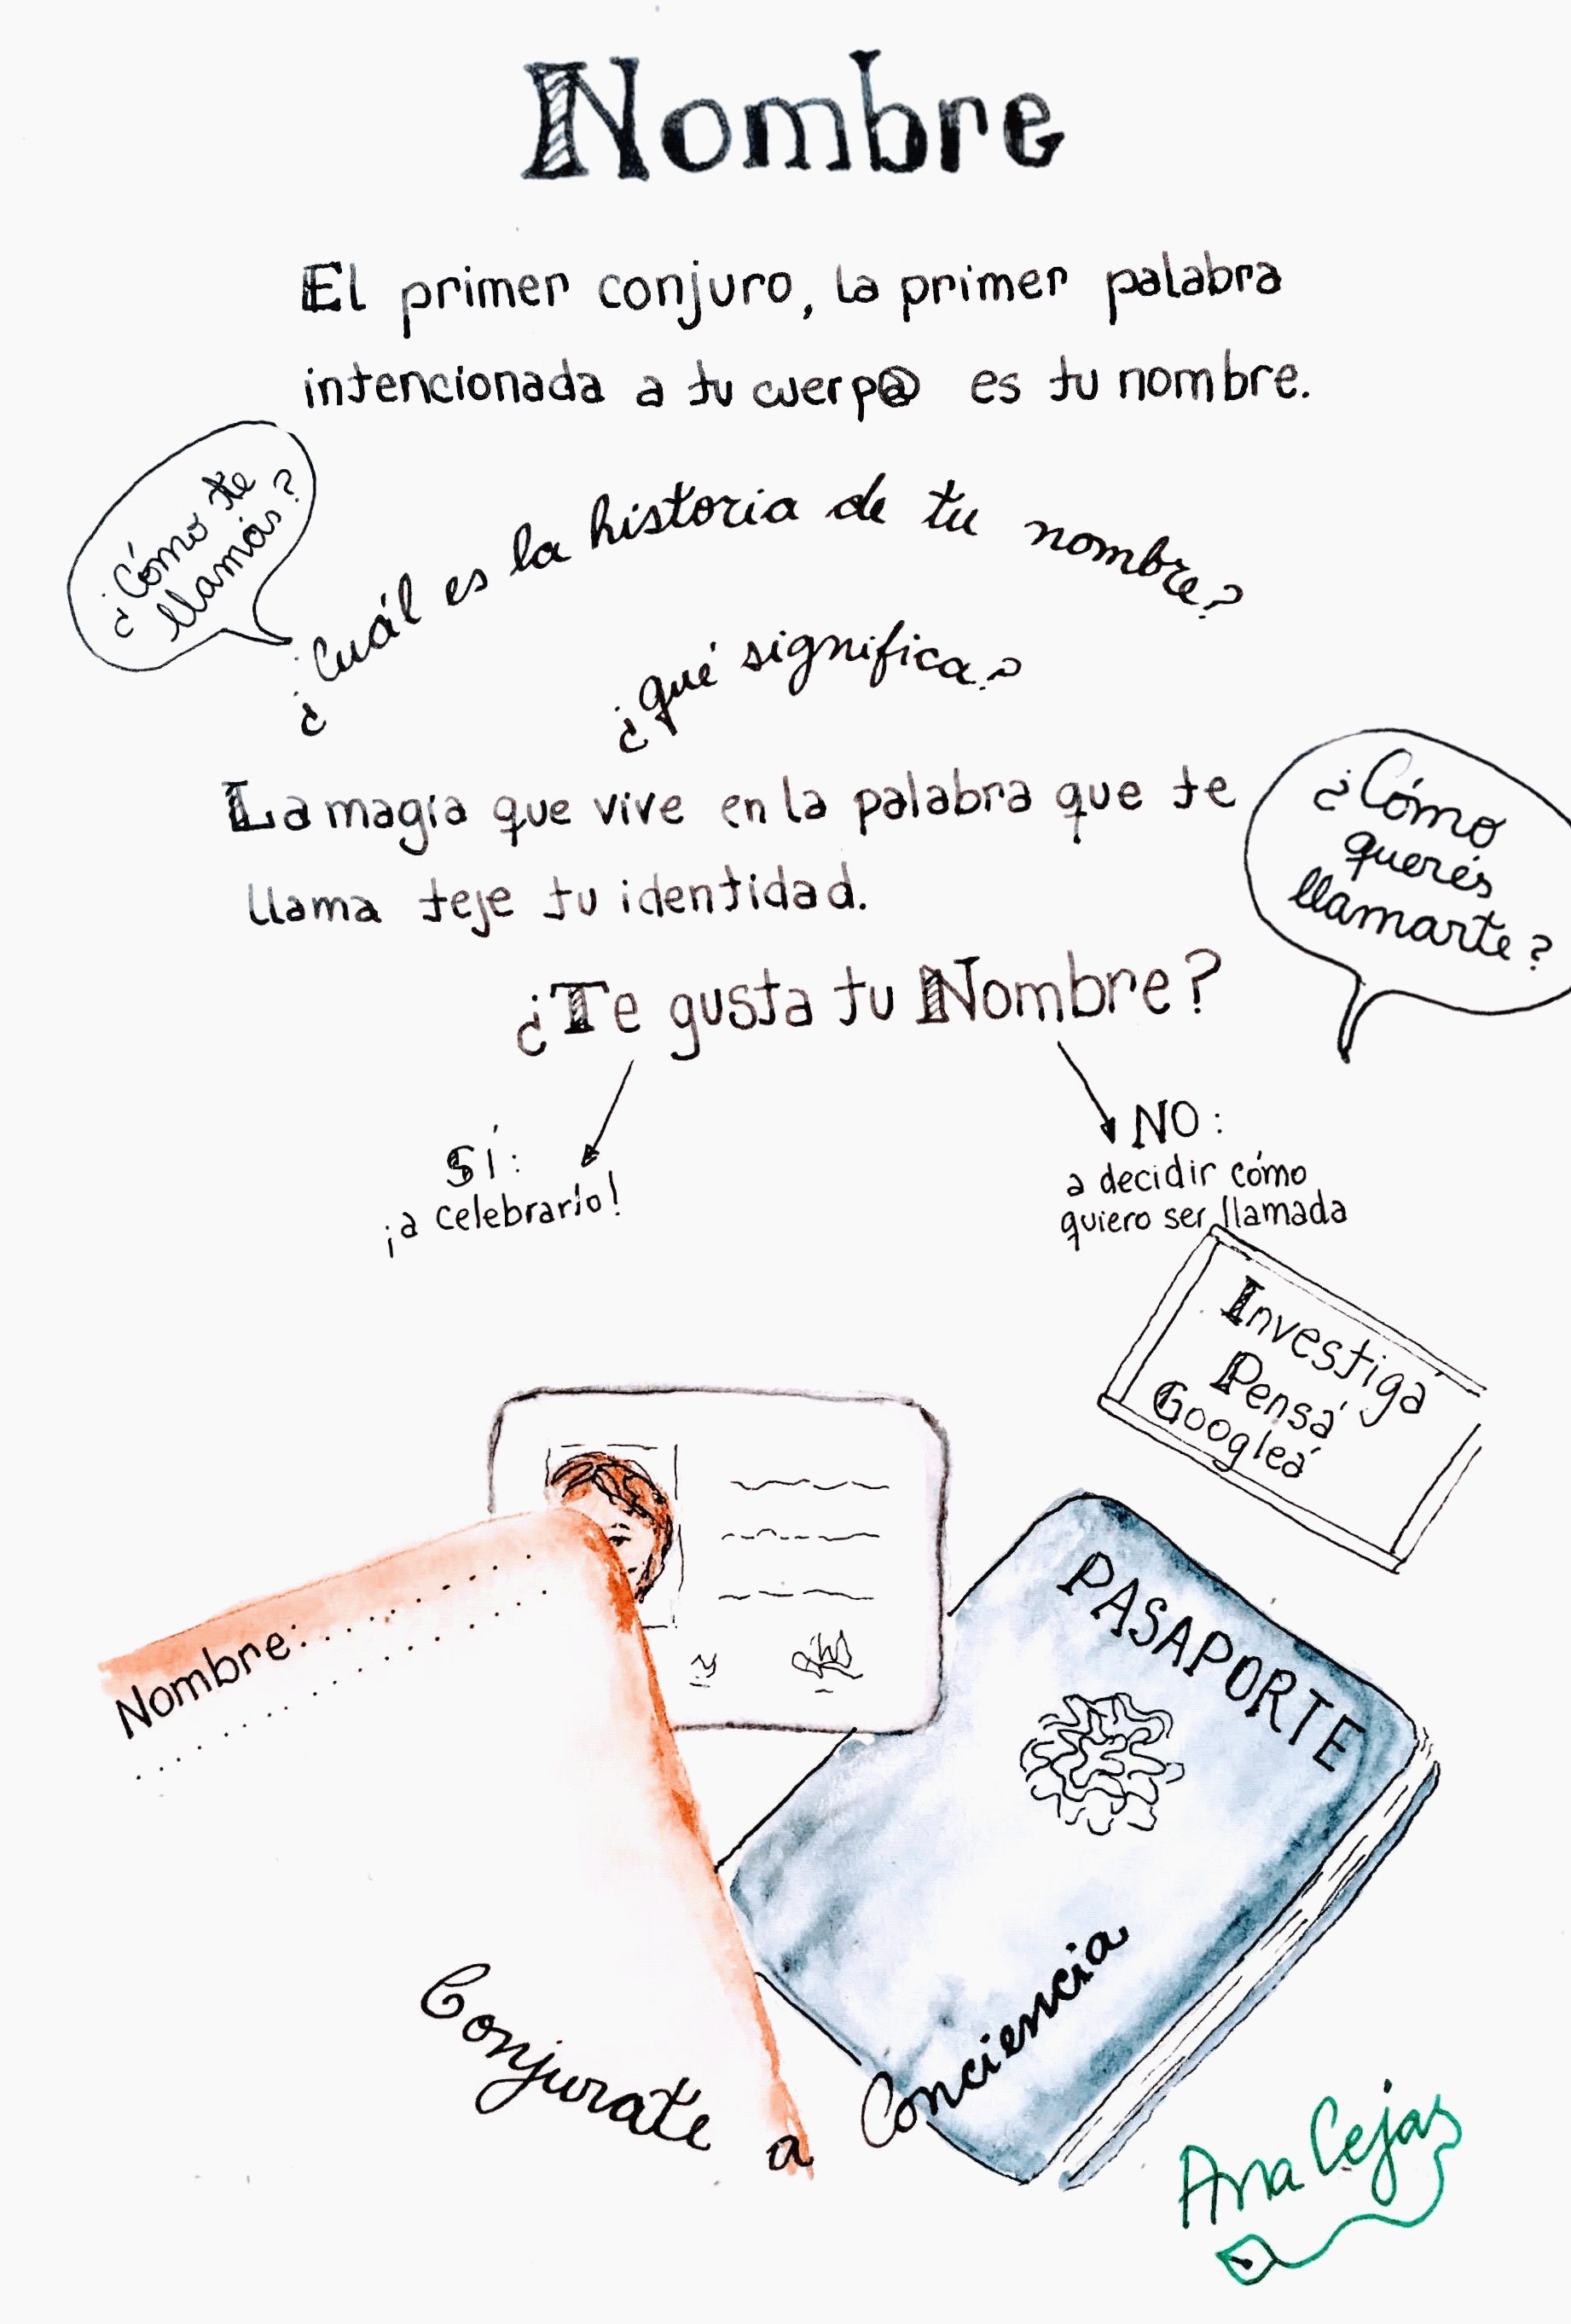 Nombre
El primer conjuro, la primer palabra
intencionada a tu cuerp@ es tu nombre.
¿Cómo te
llamás?
¿Cuál es la historia de tu nombre?
¿qué significa?
La magia que vive en la palabra que te
llama teje tu identidad.
¿Cómo
querés
llamarte?
¿Te gusta tu Nombre?
SÍ:
¡a celebrarlo!
NO:
a decidir cómo
quiero ser llamada
Investigá
Pensá
Googleá
Nombre:
PASAPORTE
Conjurate a Conciencia
Ana Cejas